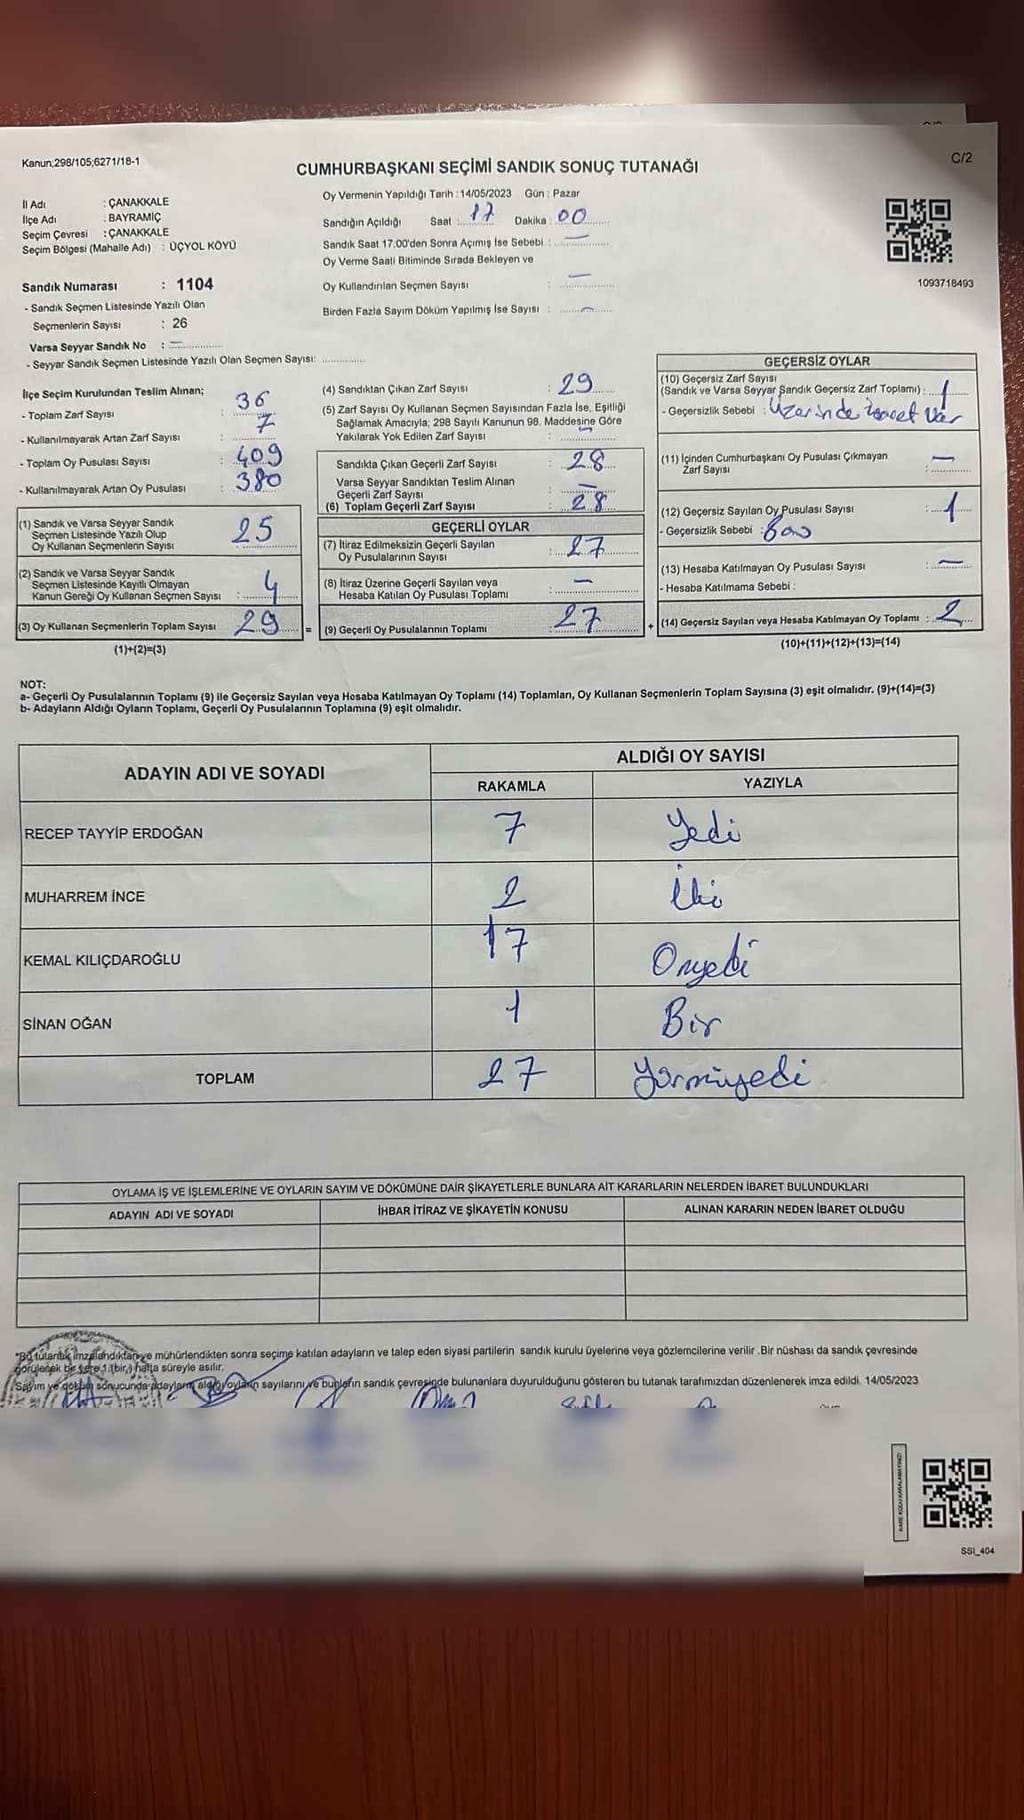 C/2
Kanun;298/105;6271/18-1
CUMHURBAŞKANI SEÇİMİ SANDIK SONUÇ TUTANAĞI
İl Adı : ÇANAKKALE
İlçe Adı : BAYRAMİÇ
Seçim Çevresi : ÇANAKKALE
Seçim Bölgesi (Mahalle Adı) : ÜÇYOL KÖYÜ
Sandık Numarası : 1104
- Sandık Seçmen Listesinde Yazılı Olan
Seçmenlerin Sayısı : 26
Varsa Seyyar Sandık No : —
- Seyyar Sandık Seçmen Listesinde Yazılı Olan Seçmen Sayısı: ..............
Oy Vermenin Yapıldığı Tarih : 14/05/2023 Gün : Pazar
Sandığın Açıldığı Saat : 17 Dakika : 00
Sandık Saat 17.00'den Sonra Açımış İse Sebebi : —
Oy Verme Saati Bitiminde Sırada Bekleyen ve
Oy Kullandırılan Seçmen Sayısı : —
Birden Fazla Sayım Döküm Yapılmış İse Sayısı : —
1093718493
İlçe Seçim Kurulundan Teslim Alınan;
- Toplam Zarf Sayısı : 36
- Kullanılmayarak Artan Zarf Sayısı : 7
- Toplam Oy Pusulası Sayısı : 409
- Kullanılmayarak Artan Oy Pusulası : 380
(1) Sandık ve Varsa Seyyar Sandık
Seçmen Listesinde Yazılı Olup
Oy Kullanan Seçmenlerin Sayısı : 25
(2) Sandık ve Varsa Seyyar Sandık
Seçmen Listesinde Kayıtlı Olmayan
Kanun Gereği Oy Kullanan Seçmen Sayısı : 4
(3) Oy Kullanan Seçmenlerin Toplam Sayısı 29 =
(1)+(2)=(3)
(4) Sandıktan Çıkan Zarf Sayısı : 29
(5) Zarf Sayısı Oy Kullanan Seçmen Sayısından Fazla İse, Eşitliği
Sağlamak Amacıyla; 298 Sayılı Kanunun 98. Maddesine Göre
Yakılarak Yok Edilen Zarf Sayısı :
Sandıkta Çıkan Geçerli Zarf Sayısı : 28
Varsa Seyyar Sandıktan Teslim Alınan
Geçerli Zarf Sayısı : —
(6) Toplam Geçerli Zarf Sayısı : 28
GEÇERLİ OYLAR
(7) İtiraz Edilmeksizin Geçerli Sayılan
Oy Pusulalarının Sayısı : 27
(8) İtiraz Üzerine Geçerli Sayılan veya
Hesaba Katılan Oy Pusulası Toplamı : —
(9) Geçerli Oy Pusulalarının Toplamı : 27 +
GEÇERSİZ OYLAR
(10) Geçersiz Zarf Sayısı
(Sandık ve Varsa Seyyar Sandık Geçersiz Zarf Toplamı) : 1
- Geçersizlik Sebebi : Üzerinde İşaret Var
(11) İçinden Cumhurbaşkanı Oy Pusulası Çıkmayan
Zarf Sayısı : —
(12) Geçersiz Sayılan Oy Pusulası Sayısı : 1
- Geçersizlik Sebebi : Boş
(13) Hesaba Katılmayan Oy Pusulası Sayısı : —
- Hesaba Katılmama Sebebi :
(14) Geçersiz Sayılan veya Hesaba Katılmayan Oy Toplamı : 2
(10)+(11)+(12)+(13)=(14)
NOT:
a- Geçerli Oy Pusulalarının Toplamı (9) ile Geçersiz Sayılan veya Hesaba Katılmayan Oy Toplamı (14) Toplamları, Oy Kullanan Seçmenlerin Toplam Sayısına (3) eşit olmalıdır. (9)+(14)=(3)
b- Adayların Aldığı Oyların Toplamı, Geçerli Oy Pusulalarının Toplamına (9) eşit olmalıdır.
ADAYIN ADI VE SOYADI
ALDIĞI OY SAYISI
RAKAMLA YAZIYLA
RECEP TAYYİP ERDOĞAN 7 Yedi
MUHARREM İNCE 2 İki
KEMAL KILIÇDAROĞLU 17 Onyedi
SİNAN OĞAN 1 Bir
TOPLAM 27 Yirmiyedi
OYLAMA İŞ VE İŞLEMLERİNE VE OYLARIN SAYIM VE DÖKÜMÜNE DAİR ŞİKAYETLERLE BUNLARA AİT KARARLARIN NELERDEN İBARET BULUNDUKLARI
ADAYIN ADI VE SOYADI İHBAR İTİRAZ VE ŞİKAYETİN KONUSU ALINAN KARARIN NEDEN İBARET OLDUĞU
*Bu tutanak imzalandıktan ve mühürlendikten sonra seçime katılan adayların ve talep eden siyasi partilerin sandık kurulu üyelerine veya gözlemcilerine verilir .Bir nüshası da sandık çevresinde
görülecek bir yere 1 (bir) hafta süreyle asılır.
Sayım ve döküm sonucunda adayların aldığı oyların sayılarını ve bunların sandık çevresinde bulunanlara duyurulduğunu gösteren bu tutanak tarafımızdan düzenlenerek imza edildi. 14/05/2023
SSI_404